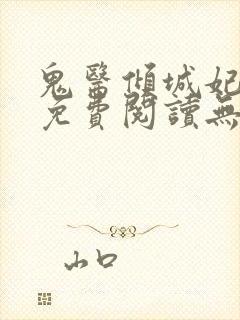 鬼醫傾城妃
免費閱讀無
山口